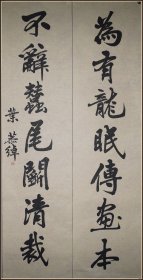 為有龍眠傳畫本
不辭蠶尾闢清裁
葉恭綽